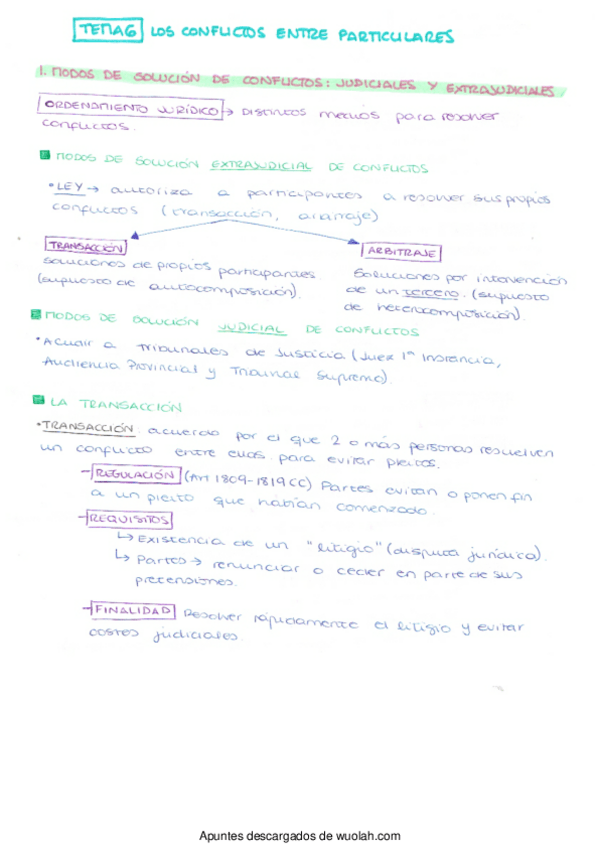 TEMA6 LOS CONFLICTOS ENTRE PARTICULARES
1. MODOS DE SOLUCIÓN DE CONFLICTOS: JUDICIALES Y EXTRAJUDICIALES
ORDENAMIENTO JURÍDICO → Distintos medios para resolver
conflictos.
MODOS DE SOLUCIÓN EXTRAJUDICIAL DE CONFLICTOS
• LEY → autoriza a participantes a resolver sus propios
conflictos (transacción, arbitraje)
TRANSACCIÓN
soluciones de propios participantes
(supuesto de autocomposición).
ARBITRAJE
Soluciones por intervención
de un tercero. (supuesto
de heterocomposición).
MODOS DE SOLUCIÓN JUDICIAL DE CONFLICTOS
• Acudir a Tribunales de Justicia (Juez 1ª Instancia,
Audiencia Provincial y Tribunal Supremo).
LA TRANSACCIÓN
• TRANSACCIÓN acuerdo por el que 2 o más personas resuelven
un conflicto entre ellos para evitar pleitos.
- REGULACIÓN (Art 1809-1819 CC) Partes evitan o ponen fin
a un pleito que habían comenzado.
- REQUISITOS
↳ Existencia de un "litigio" (disputa jurídica).
↳ Partes → renunciar o ceder en parte de sus
pretensiones.
- FINALIDAD Resolver rápidamente el litigio y evitar
costes judiciales.
Apuntes descargados de wuolah.com